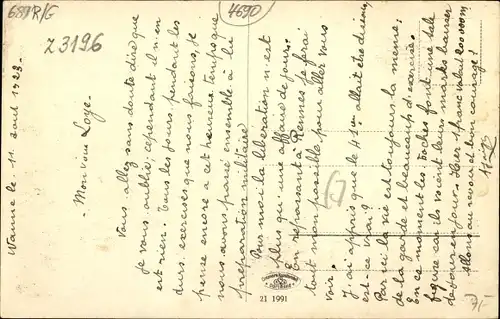 689R/G
4690
Z 3196
Wanne le 11 aout 1923
- Mon vieux Loye -
Vous allez sans doute dire que
je vous oublie; cependant il n'en
est rien. Tous les jours pendant les
durs exercices que nous faisons, je
pense encore a cet heureux temps que
nous avons passé ensemble à la
préparation militaire.
Pour moi la libération n'est
plus qu'une affaire de jours.
En repassant à Rennes je ferai
tout mon possible pour aller vous
voir.
J'ai appris que le 41ème allait être dissous,
est-ce vrai?
Par ici la vie est toujours la même:
de la garde et beaucoup d'exercice.
En ce moment les Boches font une sale
figure car ils voient leurs marks baisser
de jour en jour. Hier 1 franc valait 200000 m
allons au revoir et bon courage!
21 1991